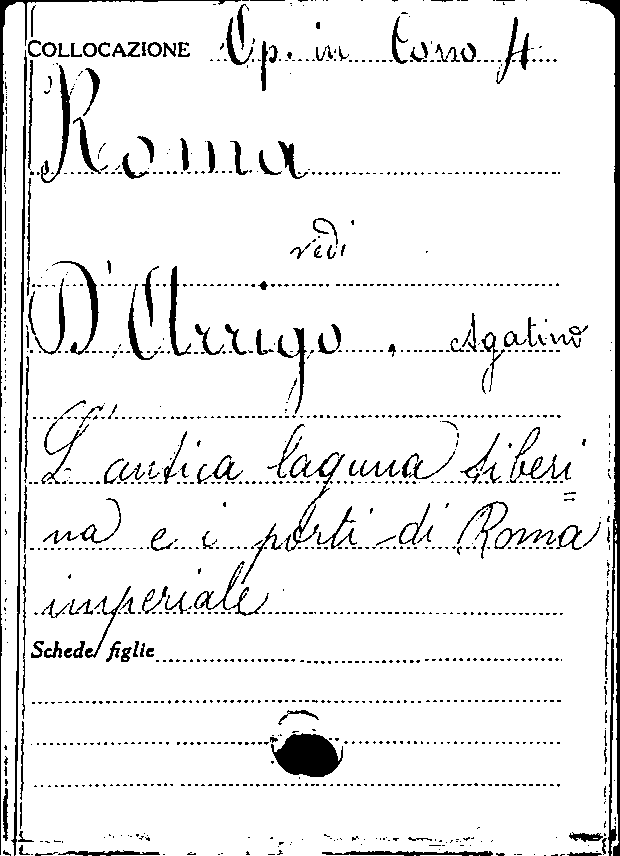 COLLOCAZIONE Op. in Corso 4
Roma
vedi
D'Arrigo, Agatino
L'antica laguna tiberi=
na e i porti di Roma
imperiale
Schede figlie